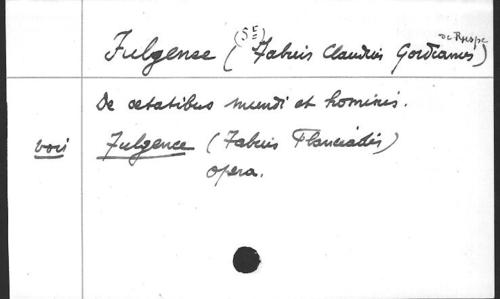 Fulgence (St) Fabius Claudius Gordianus) de Ruspe
De aetatibus mundi et hominis.
voir Fulgence (Fabius Planciadès)
opera.